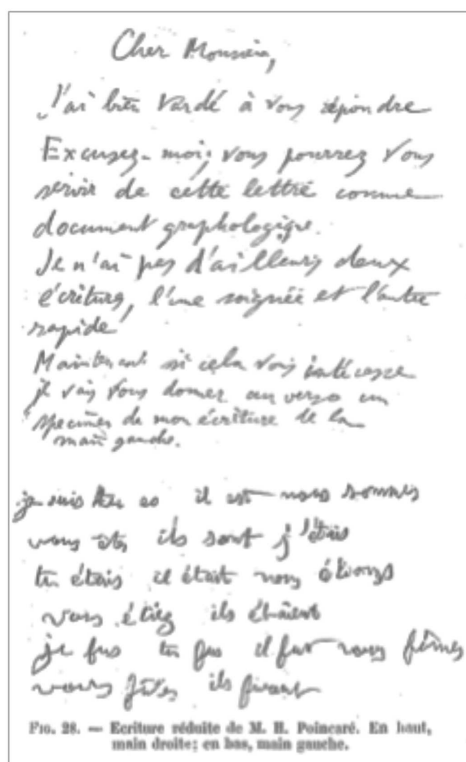 Cher Monsieur,
J'ai bien tardé à vous répondre
Excusez-moi; vous pourrez vous
servir de cette lettre comme
document graphologique.
Je n'ai pas d'ailleurs deux
écriture, l'une soignée et l'autre
rapide
Maintenant si cela vous intéresse
je vais vous donner au verso un
specimen de mon écriture de la
main gauche.
je suis tu es il est nous sommes
vous êtes ils sont j'étais
tu étais il était nous étions
vous étiez ils étaient
je fus tu fus il fut nous fûmes
vous fûtes ils furent
FIG. 28. — Ecriture réduite de M. H. Poincaré. En haut,
main droite; en bas, main gauche.